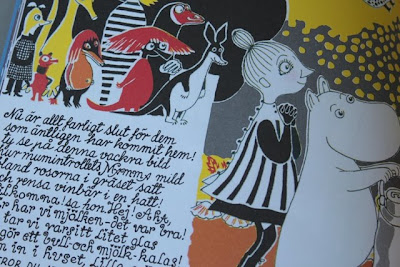 Nu är allt farligt slut för dem
som äntligen har kommit hem!
se på denna vackra bild
ur mumintrollets Mamma mild
bland rosorna i gräset satt
och rensa vinbär i en hatt!
Välkomna! sa hon, Hej! Ack,
Er har vi mjölken - det var bra!
tar vi varsitt litet glas
gör ett bull- och mjölk-kalas!
in i huset, Lilla